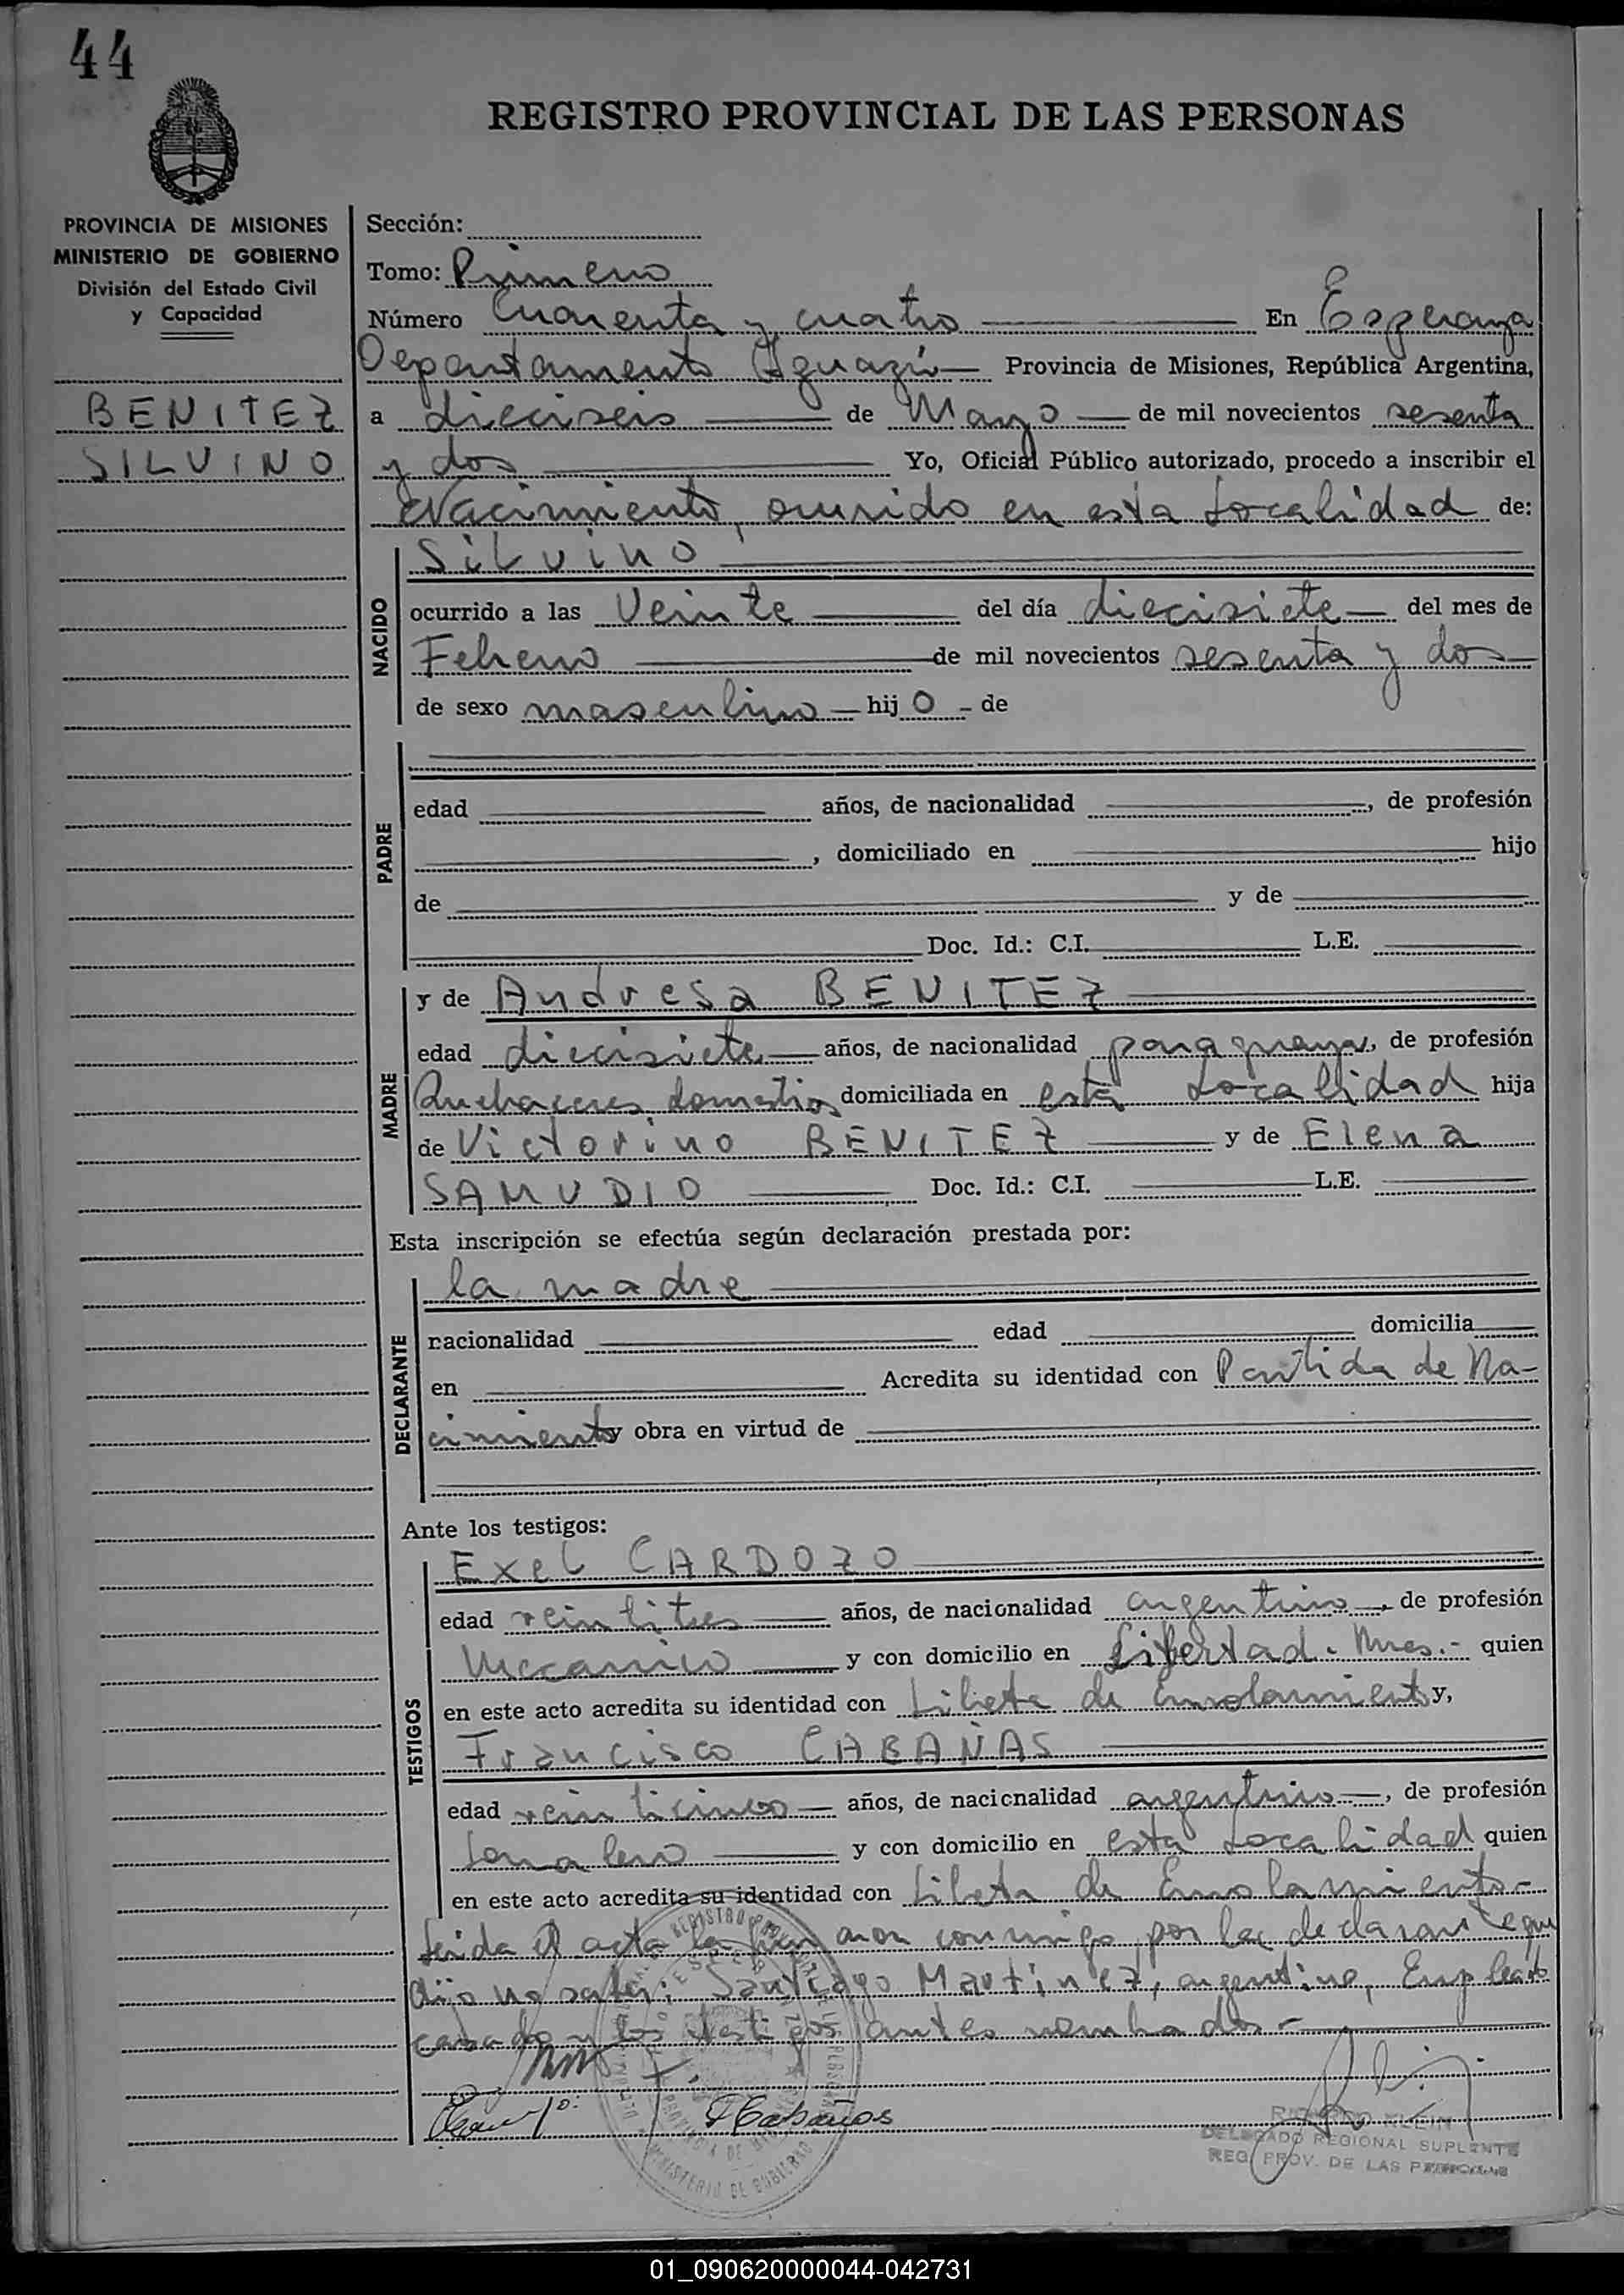 44
REGISTRO PROVINCIAL DE LAS PERSONAS
PROVINCIA DE MISIONES
MINISTERIO DE GOBIERNO
División del Estado Civil
y Capacidad
BENITEZ
SILVINO
Sección:
Tomo: Primero
Número Cuarenta y cuatro En Esperanza
Departamento Iguazú Provincia de Misiones, República Argentina,
a dieciseis de Mayo de mil novecientos sesenta
y dos Yo, Oficial Público autorizado, procedo a inscribir el
Nacimiento, ocurrido en esta Localidad de:
NACIDO
Silvino
ocurrido a las Veinte del día diecisiete del mes de
Febrero de mil novecientos sesenta y dos
de sexo masculino hij o de
PADRE
edad años, de nacionalidad , de profesión
, domiciliado en hijo
de y de
Doc. Id.: C.I. L.E.
MADRE
y de Andresa BENITEZ
edad diecisiete años, de nacionalidad paraguaya, de profesión
Quehaceres domestios domiciliada en esta Localidad hija
de Victorino BENITEZ y de Elena
SAMUDIO Doc. Id.: C.I. L.E.
Esta inscripción se efectúa según declaración prestada por:
DECLARANTE
la madre
nacionalidad edad domicilia
en Acredita su identidad con Partida de Na-
cimiento y obra en virtud de
Ante los testigos:
TESTIGOS
Exel CARDOZO
edad veintitres años, de nacionalidad argentino, de profesión
Mecanico y con domicilio en Libertad. Mnes.- quien
en este acto acredita su identidad con Libreta de Enrolamiento y,
Francisco CABAÑAS
edad veinticinco años, de nacionalidad argentino, de profesión
Jornalero y con domicilio en esta Localidad quien
en este acto acredita su identidad con Libreta de Enrolamiento-
Leida el acta la firmaron conmigo por la declarante que
dijo no saber: Santiago Martinez, argentino, Empleado
casado y los testigos antes nombrados.-
FCabañas
DELEGADO REGIONAL SUPLENTE
REG. PROV. DE LAS PERSONAS
01_090620000044-042731